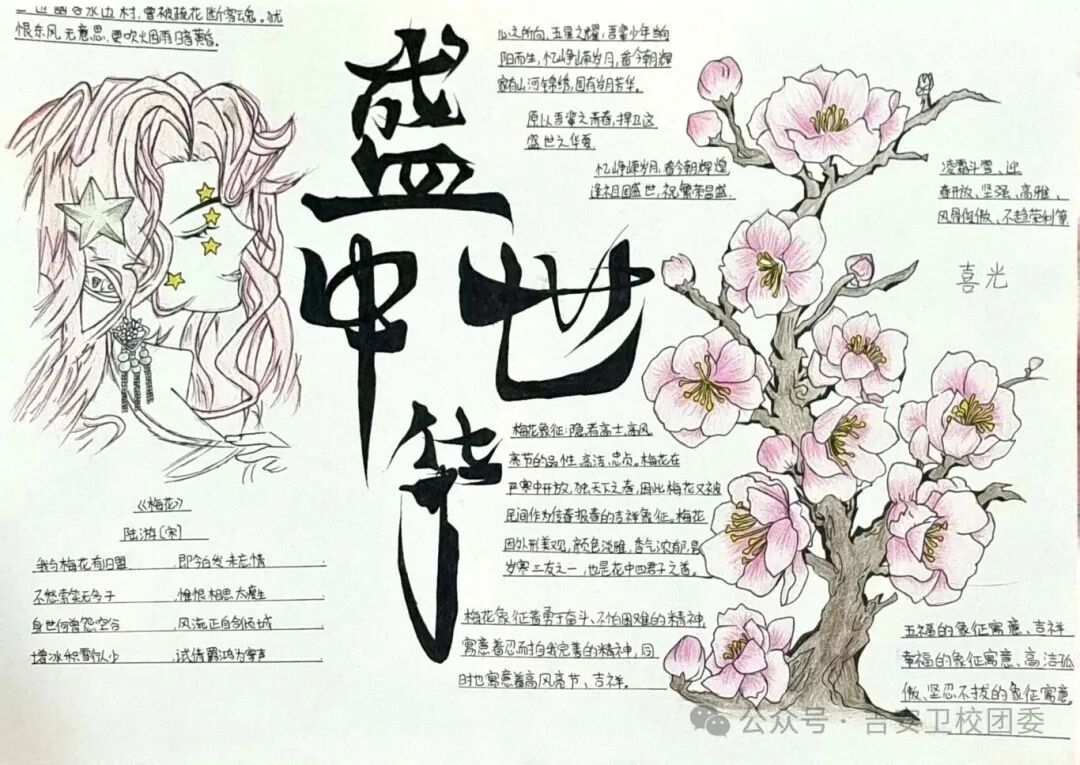 水边村,曾被疏花断客魂。犹
恨东风无意思,更吹烟雨暗黄昏。
盛
世
中
华
心之所向,五星之耀,吾辈少年当向
阳而生,忆峥嵘岁月,看今朝辉
家有山河锦绣,国有岁月芳华。
原以吾辈之青春,捍卫这
盛世之华夏
忆峥嵘岁月,看今朝辉煌
逢祖国盛世,祝繁荣昌盛.
凌霜斗雪、迎
春开放、坚强、高雅、
风骨俊傲、不趋荣利等
喜光
《梅花》
陆游(宋)
我与梅花有旧盟 即今白发未忘情
不愁索笑无多子 惟恨相思太瘦生
身世何曾怨空谷 风流正自倾城
增冰积雪似少 试倩霜鸿为寄声
梅花象征:隐者高士、高风
亮节的品性,高洁,忠贞。梅花在
严寒中开放,独天下之春,因此梅花又被
民间作为传春报春的吉祥象征。梅花
因外形美观,颜色淡雅,香气浓郁,是
岁寒三友之一,也是花中四君子之首。
梅花象征着勇于奋斗、不怕困难的精神
寓意着忍而自我完善的精神,同
时也寓意着高风亮节、吉祥。
五福的象征寓意、吉祥
幸福的象征寓意、高洁孤
傲、坚忍不拔的象征寓意。
公众号·吉安卫校团委